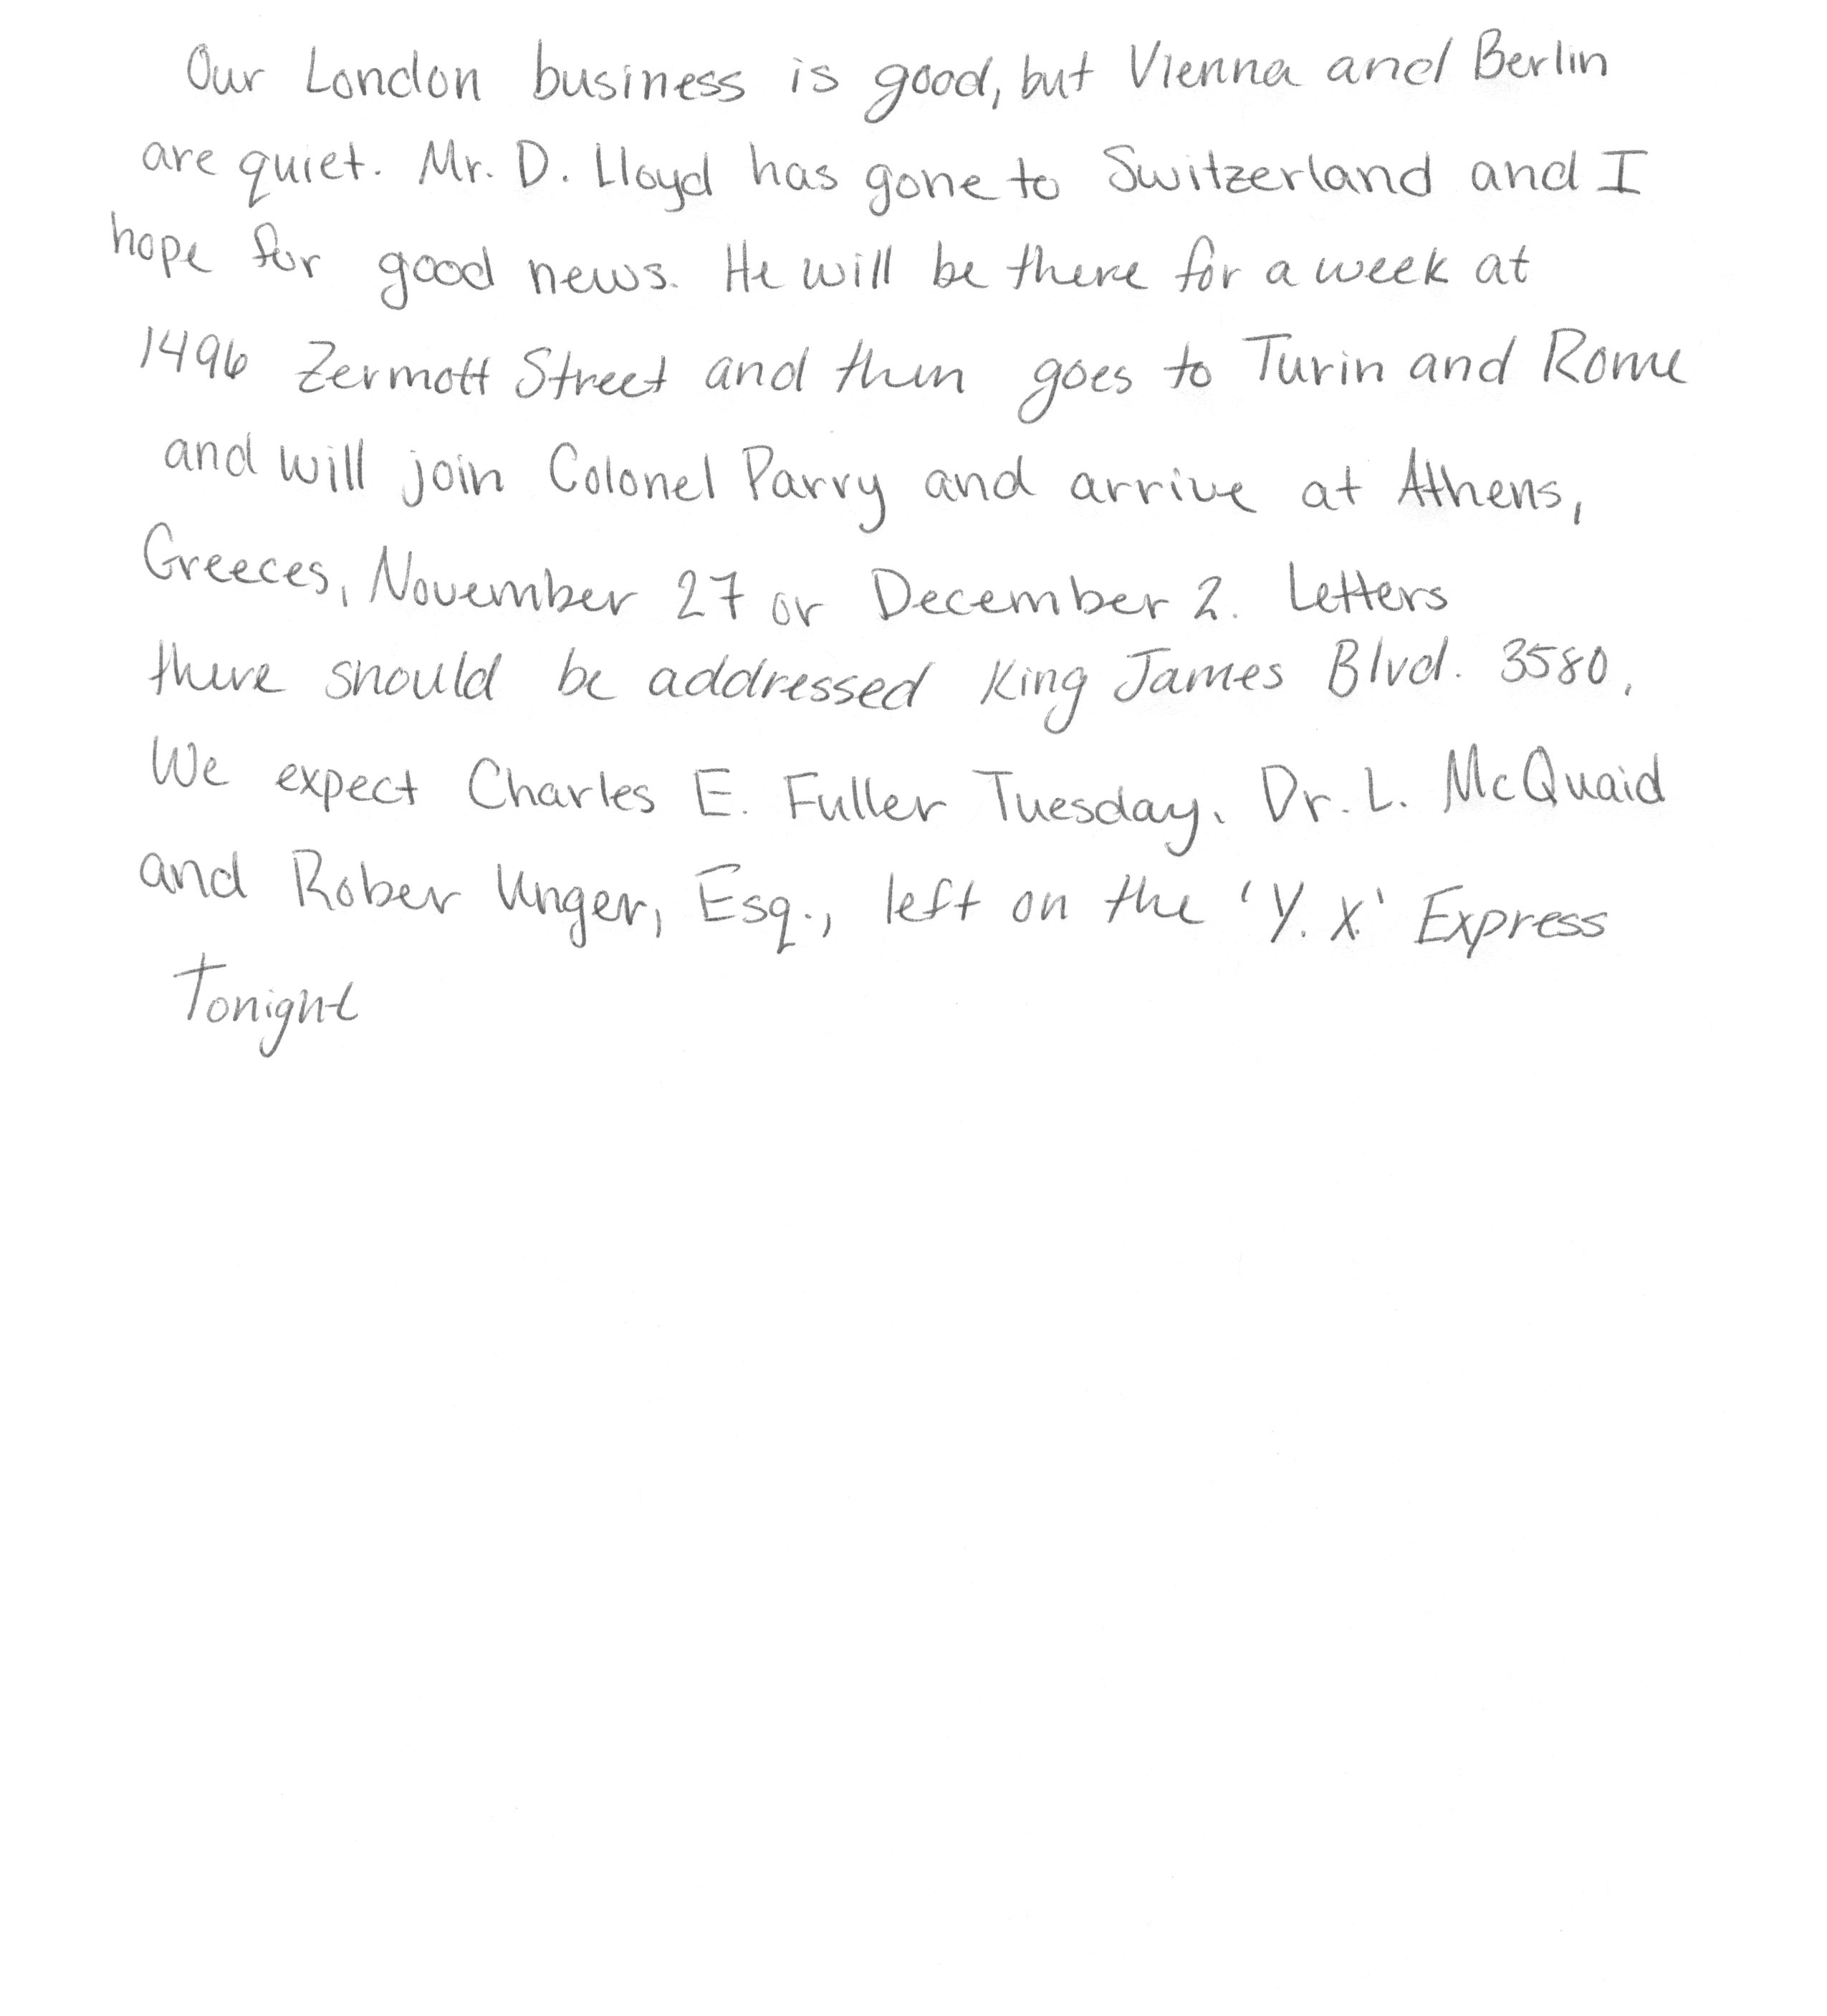 Our London business is good, but Vienna and Berlin
are quiet. Mr. D. Lloyd has gone to Switzerland and I
hope for good news. He will be there for a week at
1496 Zermott Street and then goes to Turin and Rome
and will join Colonel Parry and arrive at Athens,
Greeces, November 27 or December 2. Letters
there should be addressed King James Blvd. 3580.
We expect Charles E. Fuller Tuesday. Dr. L. McQuaid
and Rober Unger, Esq., left on the 'Y. X.' Express
Tonight